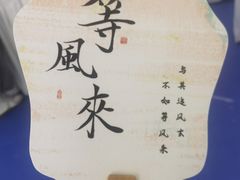 等風來
与其追风去
不如等风来